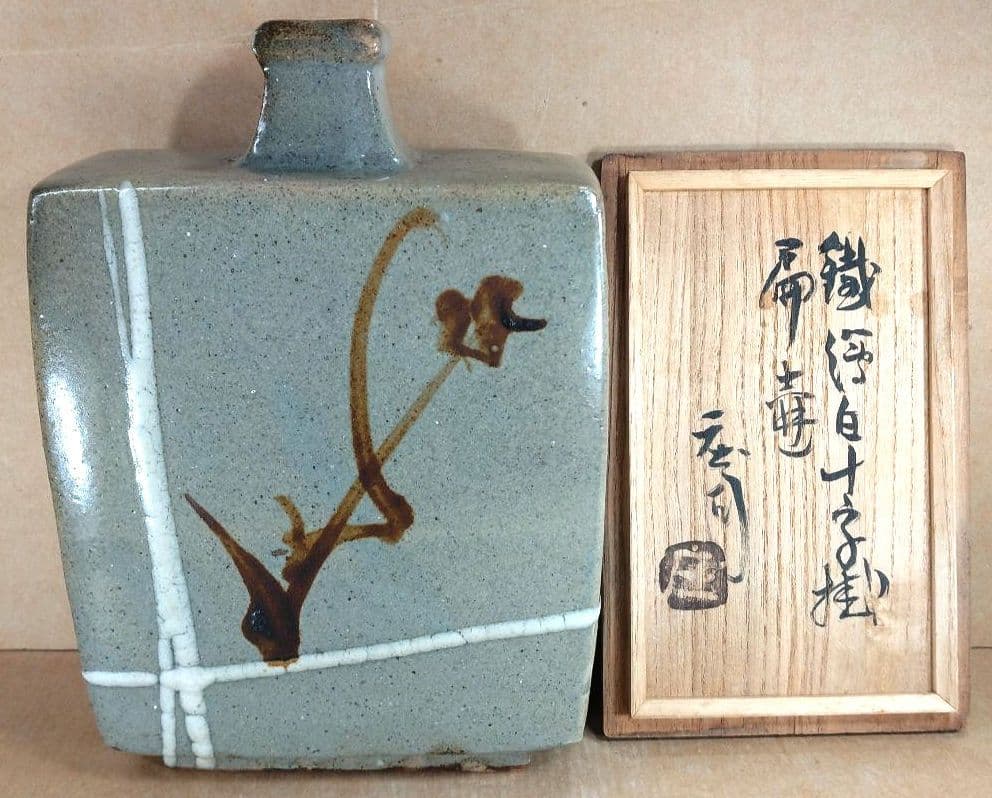 鐵繪白十字掛
扁壷
庄司